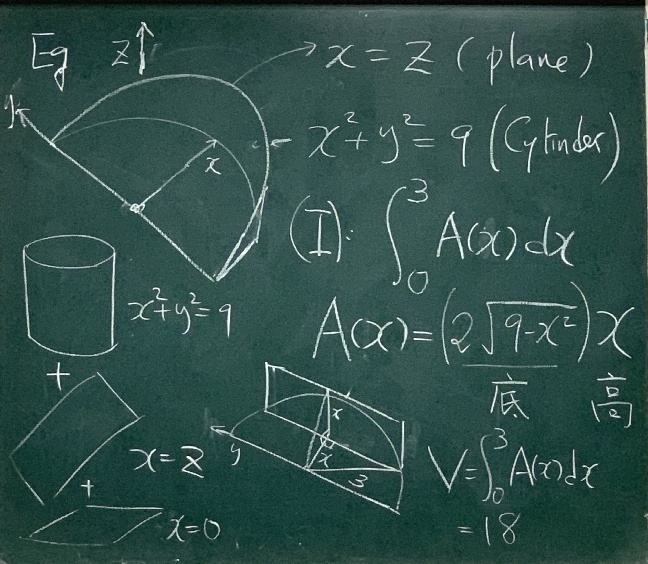 Eg z x = z (plane)
y
x² + y² = 9 (Cylinder)
x
(I): ∫₀³ A(x) dx
x² + y² = 9
A(x) = (2√9-x²) x
底 高
+
x
x = z
y x
3
V = ∫₀³ A(x) dx
+
x = 0
= 18